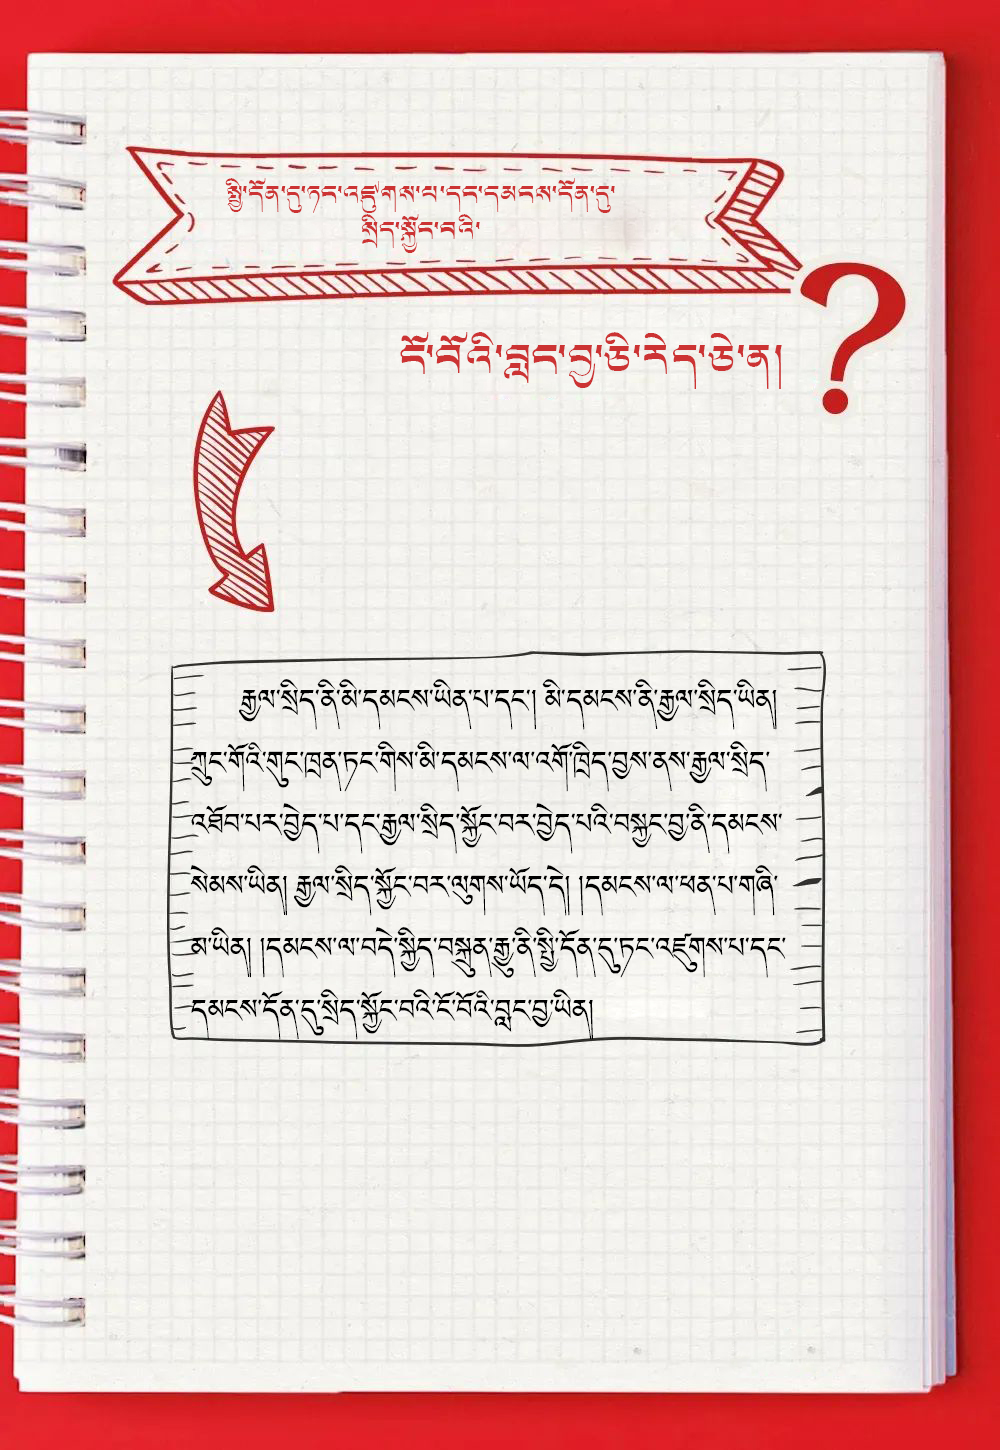 སྤྱི་དོན་དུ་ཏང་འཛུགས་པ་དང་དམངས་དོན་དུ་
སྲིད་སྐྱོང་བའི་
ངོ་བོའི་བླང་བྱ་ཅི་རེད་ཅེ་ན།
?
རྒྱལ་སྲིད་ནི་མི་དམངས་ཡིན་པ་དང་། མི་དམངས་ནི་རྒྱལ་སྲིད་ཡིན།
ཀྲུང་གོའི་གུང་ཁྲན་ཏང་གིས་མི་དམངས་ལ་འགོ་ཁྲིད་བྱས་ནས་རྒྱལ་སྲིད་
འཐོབ་པར་བྱེད་པ་དང་རྒྱལ་སྲིད་སྐྱོང་བར་བྱེད་པའི་བསྐྱང་བྱ་ནི་དམངས་
སེམས་ཡིན། རྒྱལ་སྲིད་སྐྱོང་བར་ལུགས་ཡོད་དེ། །དམངས་ལ་ཕན་པ་གཞི་
མ་ཡིན། །དམངས་ལ་བདེ་སྐྱིད་བསྐྲུན་རྒྱུ་ནི་སྤྱི་དོན་དུ་ཏང་འཛུགས་པ་དང་
དམངས་དོན་དུ་སྲིད་སྐྱོང་བའི་ངོ་བོའི་བླང་བྱ་ཡིན།